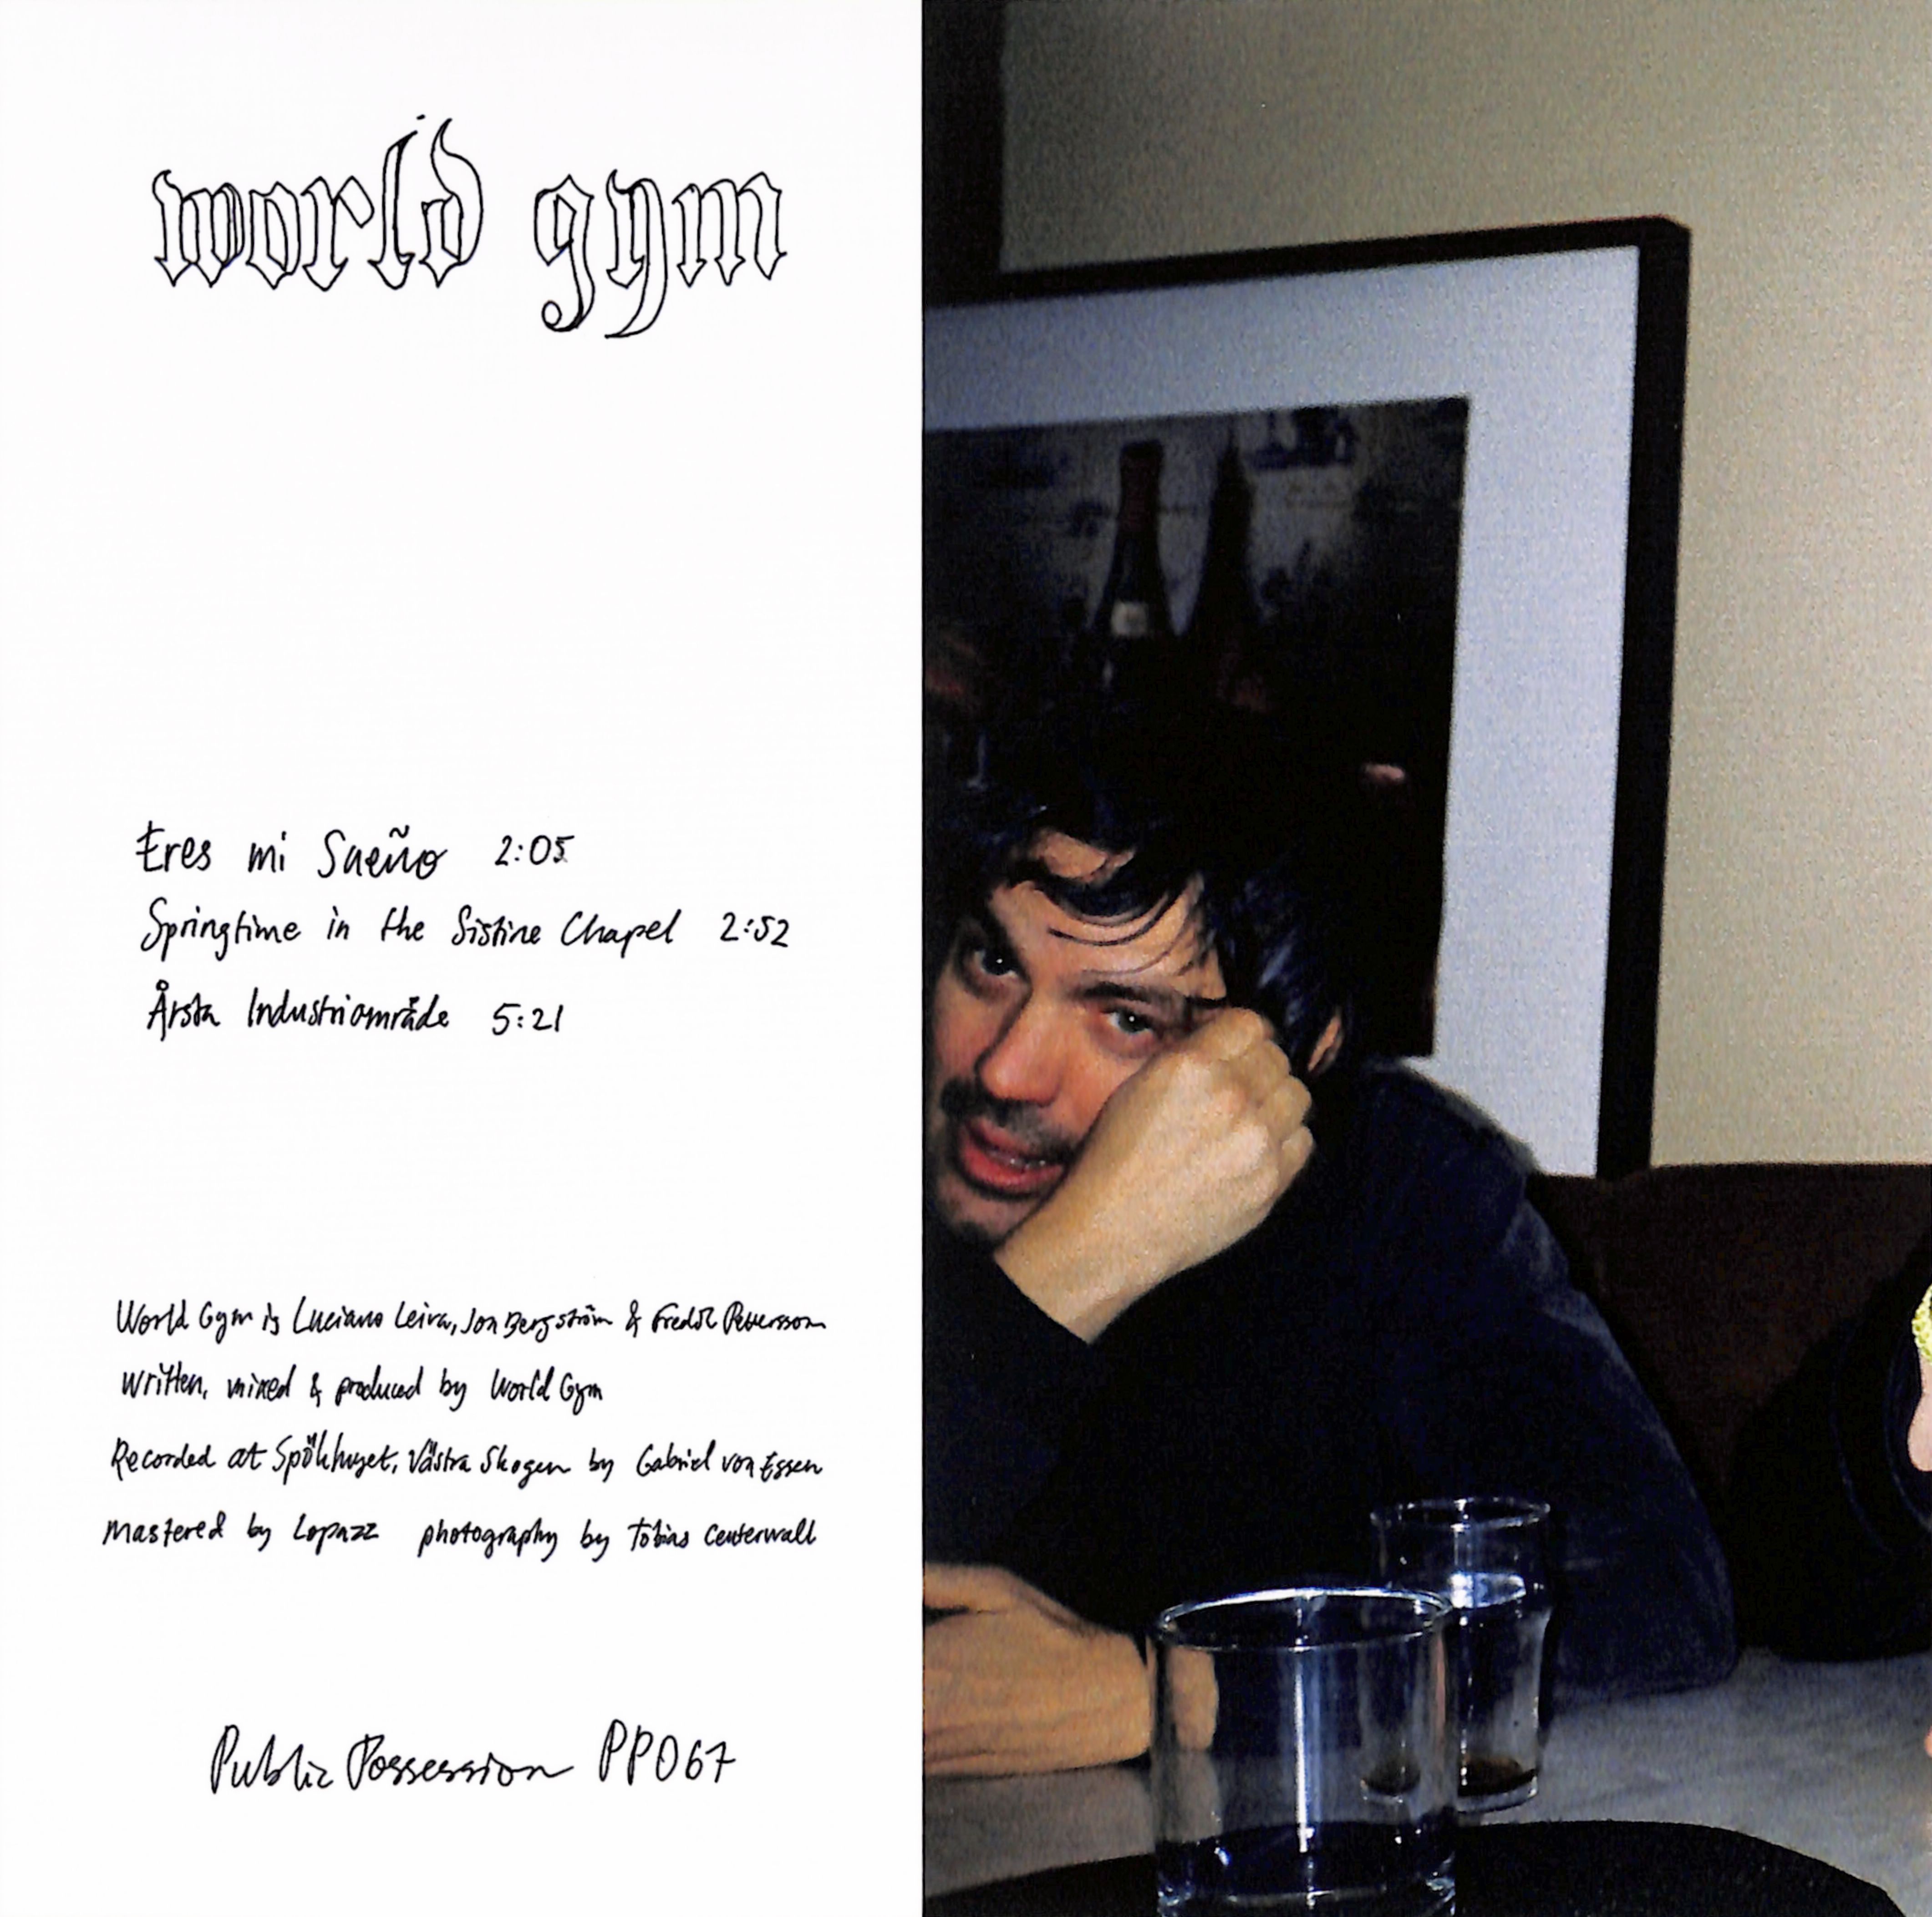 world gym
Eres mi Sueño 2:05
Springtime in the Sistine Chapel 2:52
Årsta Industriområde 5:21
World Gym is Luciano Leiva, Jon Bergström &
Written, mixed & produced by World Gym
Recorded at Spökhuset, Västra Skogen by Gabriel von Essen
Mastered by Lopazz photography by Tobias Centerwall
Public Possession PP067